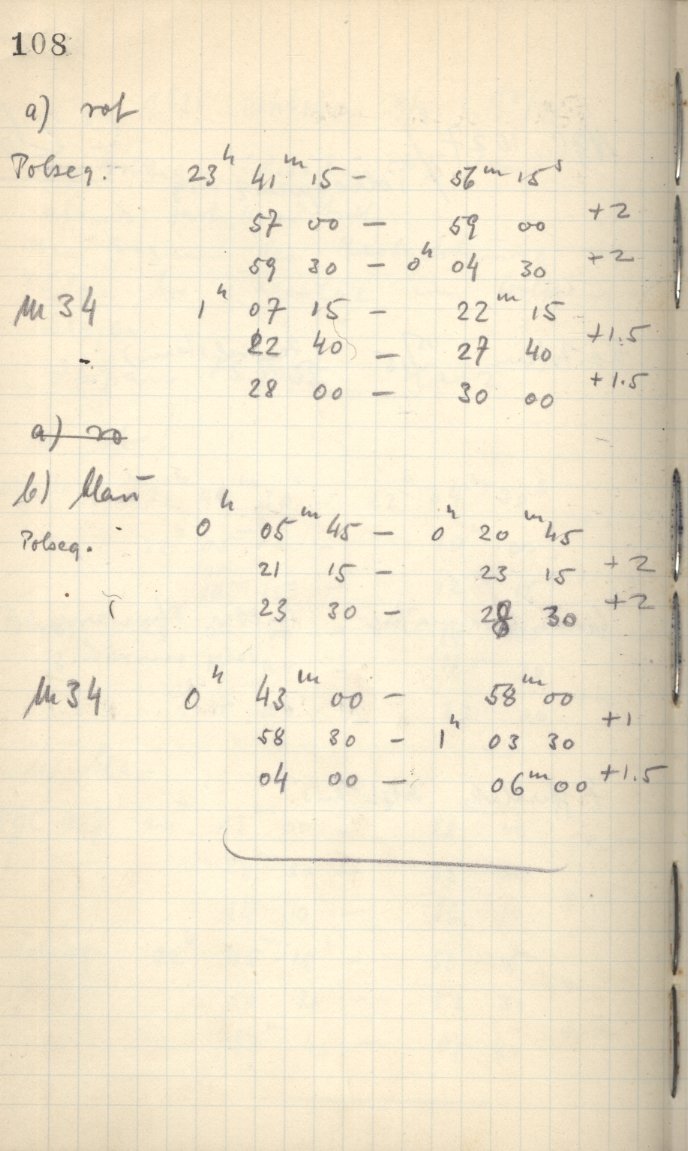 108
a) rot
Polseq. 23h 41m 15 – 56m 15s
57 00 – 59 00 +2
59 30 – 0h 04 30 +2
M 34 1h 07 15 – 22m 15
22 40 – 27 40 +1.5
28 00 – 30 00 +1.5
a) ro
b) blau
Polseq. 0h 05m 45 – 0h 20m 45
21 15 – 23 15 +2
23 30 – 28 30 +2
M 34 0h 43m 00 – 58m 00
58 30 – 1h 03 30 +1
04 00 – 06m 00 +1.5